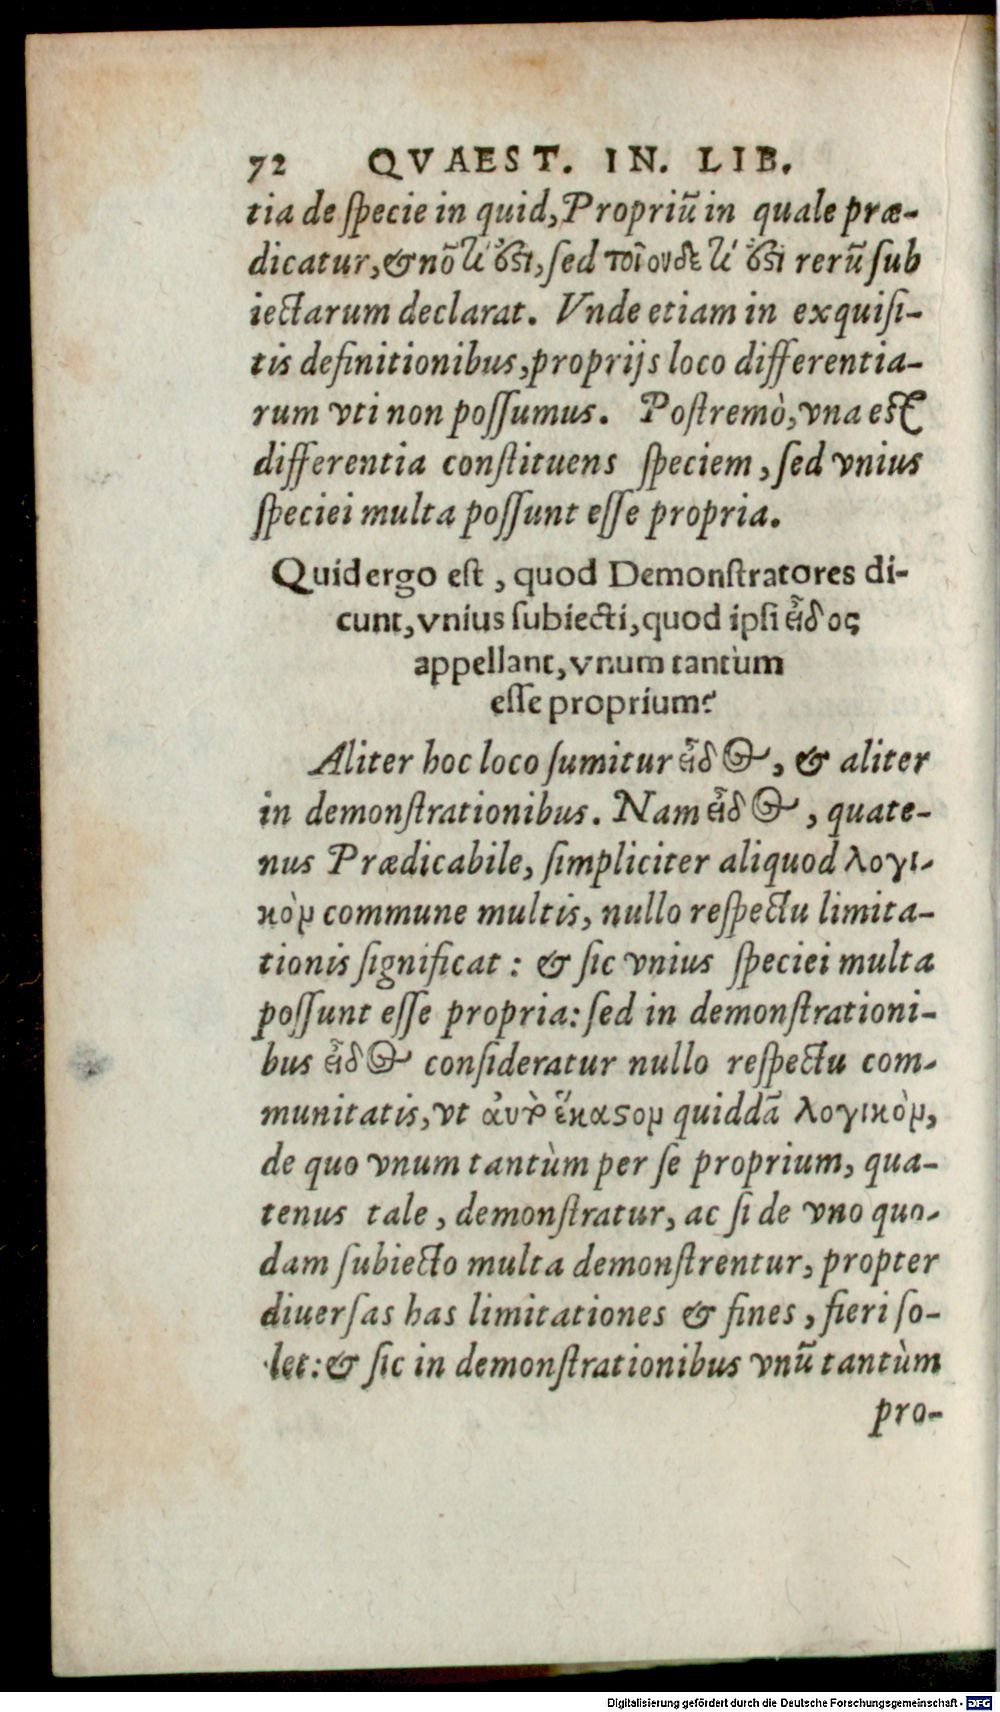 72 QVAEST. IN. LIB.
tia de ſpecie in quid, Propriũ in quale præ-
dicatur, & nõ τί ὅϛι, ſed ποῖον δέ τί ὅϛι rerũ ſub
iectarum declarat. Vnde etiam in exquiſi-
tis definitionibus, proprijs loco differentia-
rum vti non poſſumus. Poſtremò, vna eſt
differentia conſtituens ſpeciem, ſed vnius
ſpeciei multa poſſunt eſſe propria.
Quid ergo eſt, quod Demonſtratores di-
cunt, vnius ſubiecti, quod ipſi εἶδος
appellant, vnum tantùm
eſſe proprium?
Aliter hoc loco ſumitur εἶδος, & aliter
in demonſtrationibus. Nam εἶδος, quate-
nus Prædicabile, ſimpliciter aliquod λογι-
κὸν commune multis, nullo reſpectu limita-
tionis ſignificat: & ſic vnius ſpeciei multa
poſſunt eſſe propria: ſed in demonſtrationi-
bus εἶδος conſideratur nullo reſpectu com-
munitatis, vt ἕκαϛον quiddã λογικὸν,
de quo vnum tantùm per ſe proprium, qua-
tenus tale, demonſtratur, ac ſi de vno quo-
dam ſubiecto multa demonſtrentur, propter
diuerſas has limitationes & fines, fieri ſo-
let: & ſic in demonſtrationibus vnũ tantùm
pro-
Digitalisierung gefördert durch die Deutsche Forschungsgemeinschaft - DFG